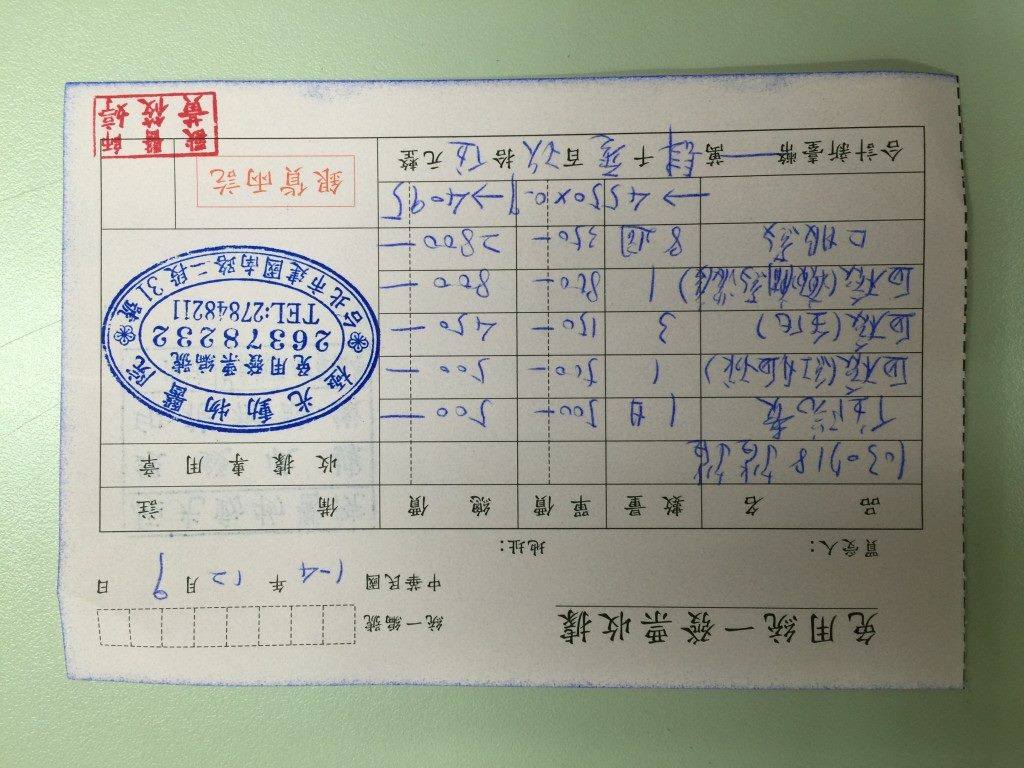 免用統一發票收據
統一編號
中華民國 104 年 12 月 9 日
買受人：
地址：
品名 數量 單價 總價 備註
1030918
收據專用章
住院費 1日 500- 500-
血檢(紅白血球) 1 500- 500-
血檢(生化) 3 150- 450-
血檢( 1 800- 800-
口服藥 8週 350- 2800-
→4550x0.9→4095
合計新臺幣 萬 肆千零百玖拾伍元整
極光動物醫院
免用發票編號
26378232
TEL:27848211
台北市建國南路二段31號
銀貨兩訖
獸醫師
黃筱婷